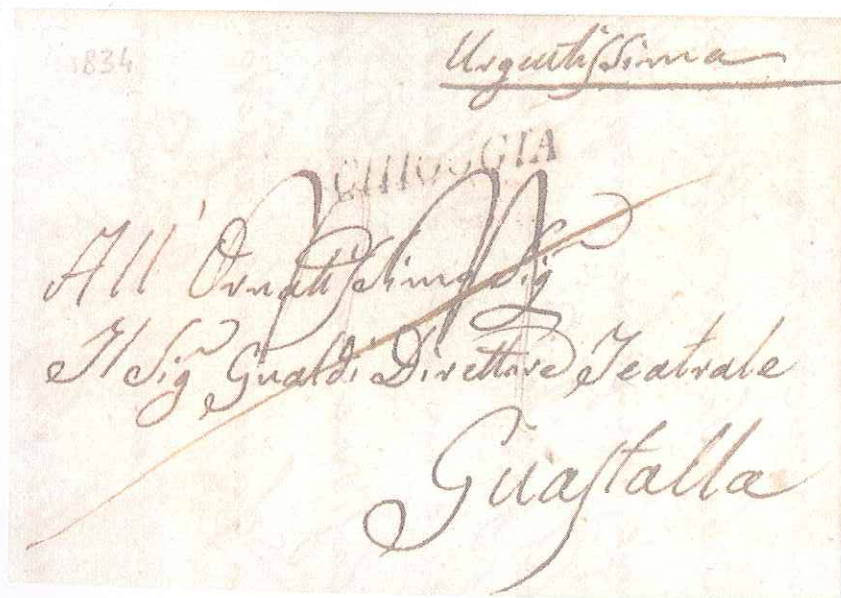 1834
Urgentissima
CHIOGGIA
All' Ornatissimo Sig
Il Sig Gualdi Direttore Teatrale
Guastalla